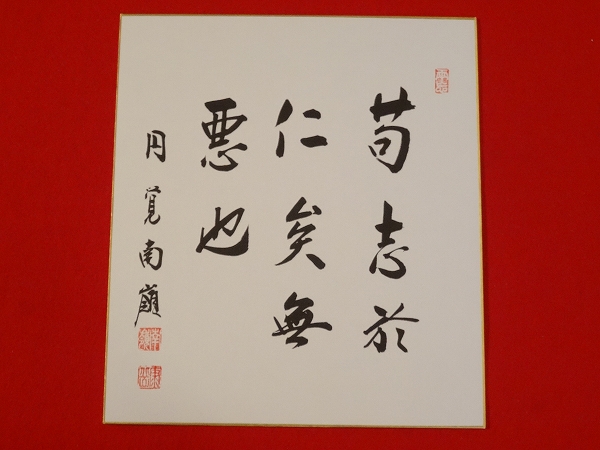 苟志於
仁矣無
悪也
円覚南嶺